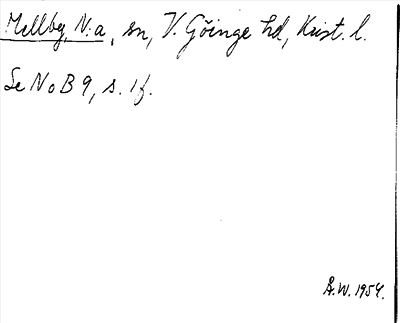 Mellby, N:a, sn, V. Göinge hd, Krist. l.
Se NoB 9, s. 1f.
Å.W. 1954.